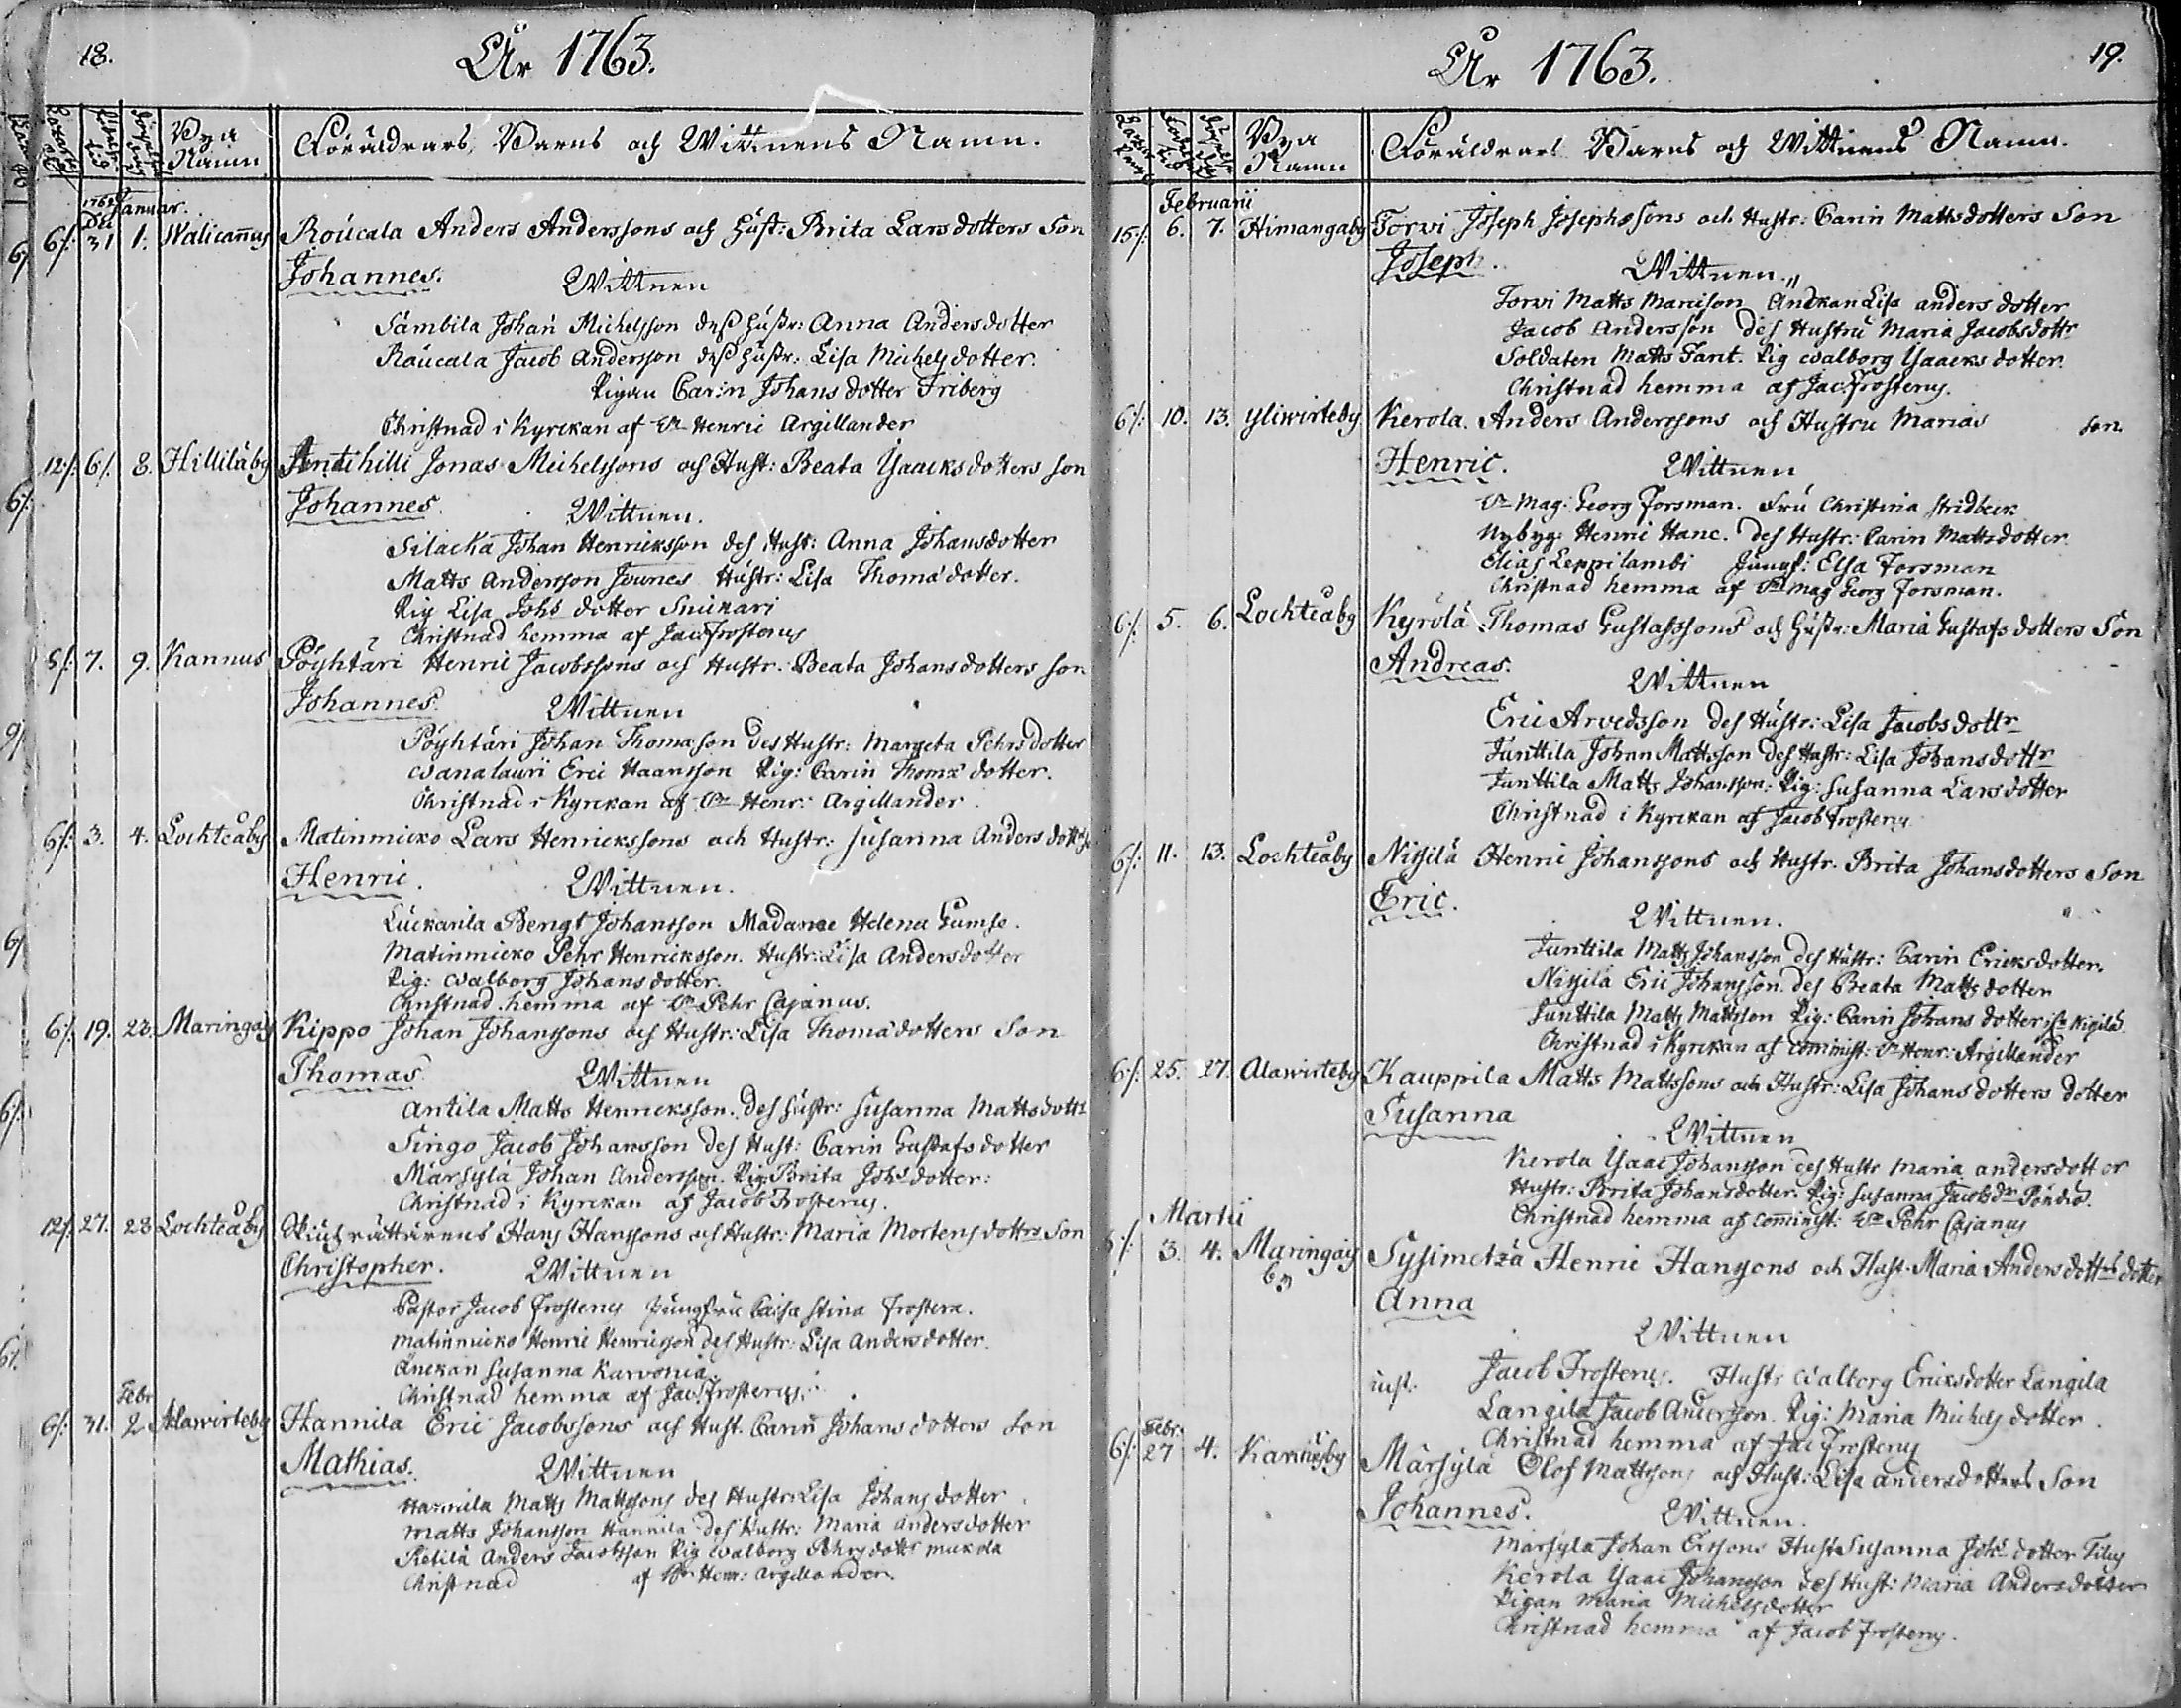 18.
År 1763.
Bya Namn
Föräldrars, Barns och Wittnens Namn.
1762 Januar.
Dec
6/: 31 1. Walicannus Roucala Anders Anderssons och Hust: Brita Larsdotters Son
Johannes. Wittnen
Sämbila Johan Michelsson dess Hustr: Anna Andersdotter
Roucala Jacob Andersson dess Hustr: Lisa Michelsdotter.
Pigan Carin Johansdotter Friberg
Christnad i Kyrckan af Hr Henric Argillander
12/: 6/. 8. Hilliläby Anttihilli Jonas Michelssons och Hust: Beata Ysaacksdotters son
Johannes. Wittnen.
Silacka Johan Henricksson des Hust: Anna Johansdotter
Matts Andersson Hustr: Lisa Thomædotter.
Pig Lisa Johs dotter
Christnad hemma af Jac Frosterus
5/: 7. 9. Kannus Pöyhtäri Henric Jacobssons och Hustr: Beata Johansdotters son
Johannes. Wittnen
Pöyhtäri Johan Thomason des Hustr: Margeta Pehrsdotter
Wanalauri Eric Haansson Pig: Carin Thomædotter.
Christnad i Kyrckan af Hr Henr: Argillander.
6/: 3. 4. Lochteåby Matinmicko Lars Henrickssons och Hustr: Susanna Andersdottr
Henric. Wittnen.
Luckarila Bengt Johansson Madame Helena Gumse.
Matinmicko Pehr Henricksson. Hustr: Lisa Andersdotter
Pig: Walborg Johansdotter.
Christnad hemma af Hr Pehr Cajanus.
6/: 19. 23. Maringais Kippo Johan Johanssons och Hustr: Lisa Thomædotters Son
Thomas Wittnen
Antila Matts Henricksson. des Hustr: Susanna Mattsdottr
Singo Jacob Johansson des Hust: Carin Gustafsdotter
Märsylä Johan Andersson. Pig: Brita Johs dotter:
Christnad i Kyrckan af Jacob Frosterus.
12/: 27. 28 Lochteåby Hans Hanssons och Hustr: Maria Mortensdottrs Son
Christopher. Wittnen
Pastor Jacob Frosterus Jungfru Caisa Stina Frostera.
Matinmicko Henric Henricsson des Hustr: Lisa Andersdotter.
Änckan Susanna Karvonia.
Christnad hemma af Jac. Frosterus.
Febr
6/: 31. 2 Alawirteby Hannila Eric Jacobssons och Hust. Carin Johansdotters son
Mathias. Wittnen
Hannila Matts Mattssons des Hustr: Lisa Johansdotter
Matts Johansson Hannila des Hustr: Maria Andersdotter
Anders Jacobsson Pig Walborg Pehrsdottr
Christnad af Hr Henr: Argillander.
19.
År 1763.
Bya Namn
Föräldrars Barns och Wittnens Namn.
Februarii
15/: 6. 7. Himangaby Torvi Joseph Josephssons och Hustr: Carin Mattsdotters Son
Joseph. Wittnen
Torvi Matts Änckan Lisa Andersdotter
Jacob Andersson des Hustru Maria Jacobsdottr
Soldaten Matts Fant. Pig Walborg Ysaacksdotter.
Christnad hemma af Jac. Frosterus.
6/: 10. 13. Yliwirteby Kerola. Anders Anderssons och Hustru Marias son.
Henric. Wittnen
Hr Mag: Georg Forsman. Fru Christina Stridbeck
Nybyg: Henric Hanc. des Hustr: Carin Mattsdotter
Elias Leppilambi Jungf: Elsa Forsman
Christnad hemma af Hr Mag Georg Forsman.
6/: 5. 6. Lochteåby Kyrölä Thomas Gustafssons och Hustr: Maria Gustafsdotters Son
Andreas. Wittnen
Eric Arvedsson des Hustr: Lisa Jacobsdottr
Junttila Johan Mattsson des Hustr: Lisa Johansdottr
Junttila Matts Johansson. Pig: Susanna Larsdotter
Christnad i Kyrckan af Jacob Frosterus
6/: 11. 13. Lochteåby Nisjilä Henric Johanssons och Hustr. Brita Johansdotters Son
Eric. Wittnen.
Junttila Matts Johansson des Hustr: Carin Ericksdotter.
Nisjilä Eric Johansson des Beata Mattsdotter
Junttila Matts Mattsson Pig: Carin Johansdotter
Christnad i Kyrckan af Comminist: Hr Henr: Argillander
6/: 25. 27. Alawirteby Kauppila Matts Mattssons och Hustr: Lisa Johansdotters dotter
Susanna Wittnen
Kerola Ysaac Johansson des Hustr Maria Andersdotter
Hustr: Brita Johansdotter. Pig: Susanna Jacobsdr
Christnad hemma af Comminist: Hr Pehr Cajanus
Martii
3. 4. Maringais Sysimetzä Henric Hanssons och Hust. Maria Andersdottrs dotter
Anna
Wittnen
Jacob Frosterus. Hustr Walborg Ericksdotter Langila
Langila Jacob Andersson. Pig: Maria Michelsdotter.
Christnad hemma af Jac Frosterus
Febr.
6/: 27 4. Kannusby Märsylä Olof Mattssons och Hust: Lisa Andersdotters Son
Johannes. Wittnen.
Märsylä Johan Ersons Hust Susanna Johs dotter Tilus
Kerola Ysaac Johansson des Hust: Maria Andersdotter
Pigan Maria Michelsdotter
Christnad hemma af Jacob Frosterus.